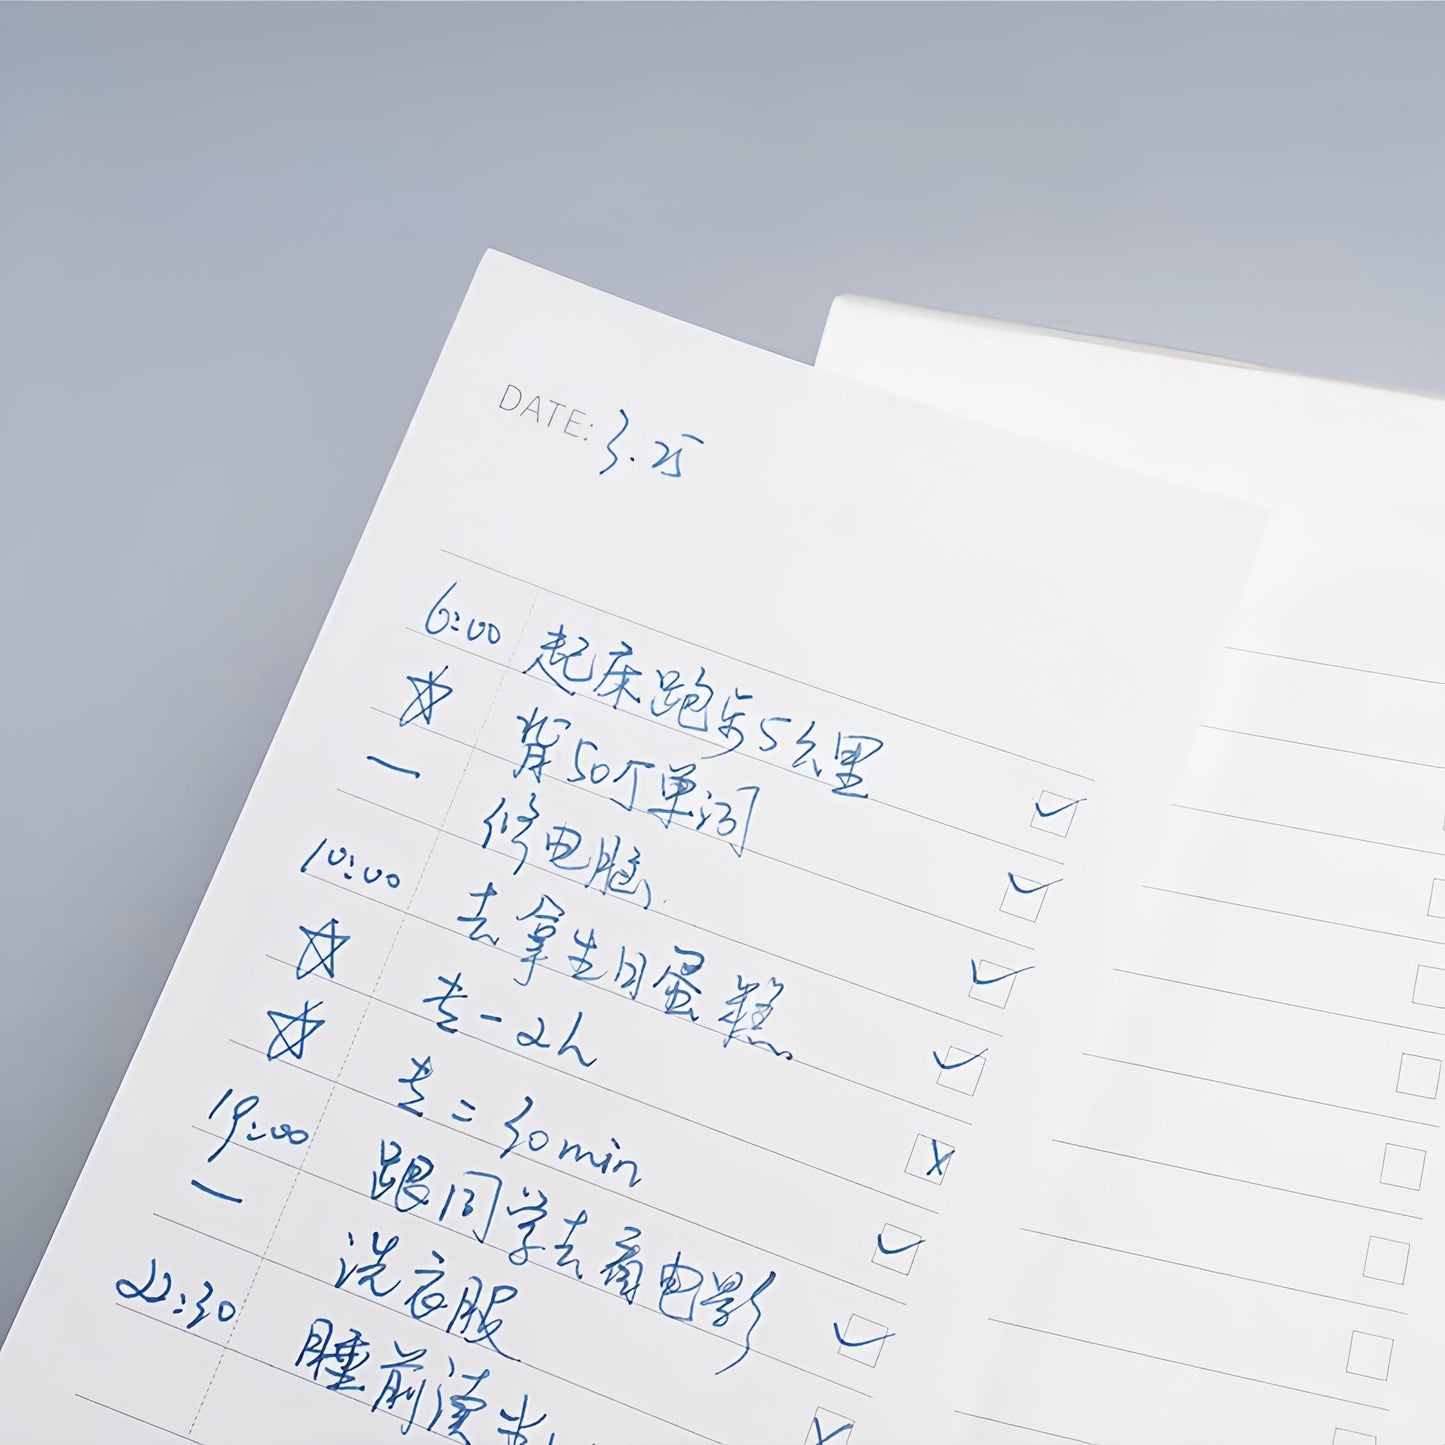 DATE: 3.25
6:00 起床跑步5公里
☆ 背50个单词
一 修电脑
10:00 去拿生日蛋糕
☆ 专一2h
☆ 专二30min
19:00 跟同学去看电影
一 洗衣服
22:30 睡前读